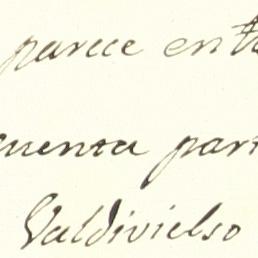 parece en
cuenta par
Valdivielso